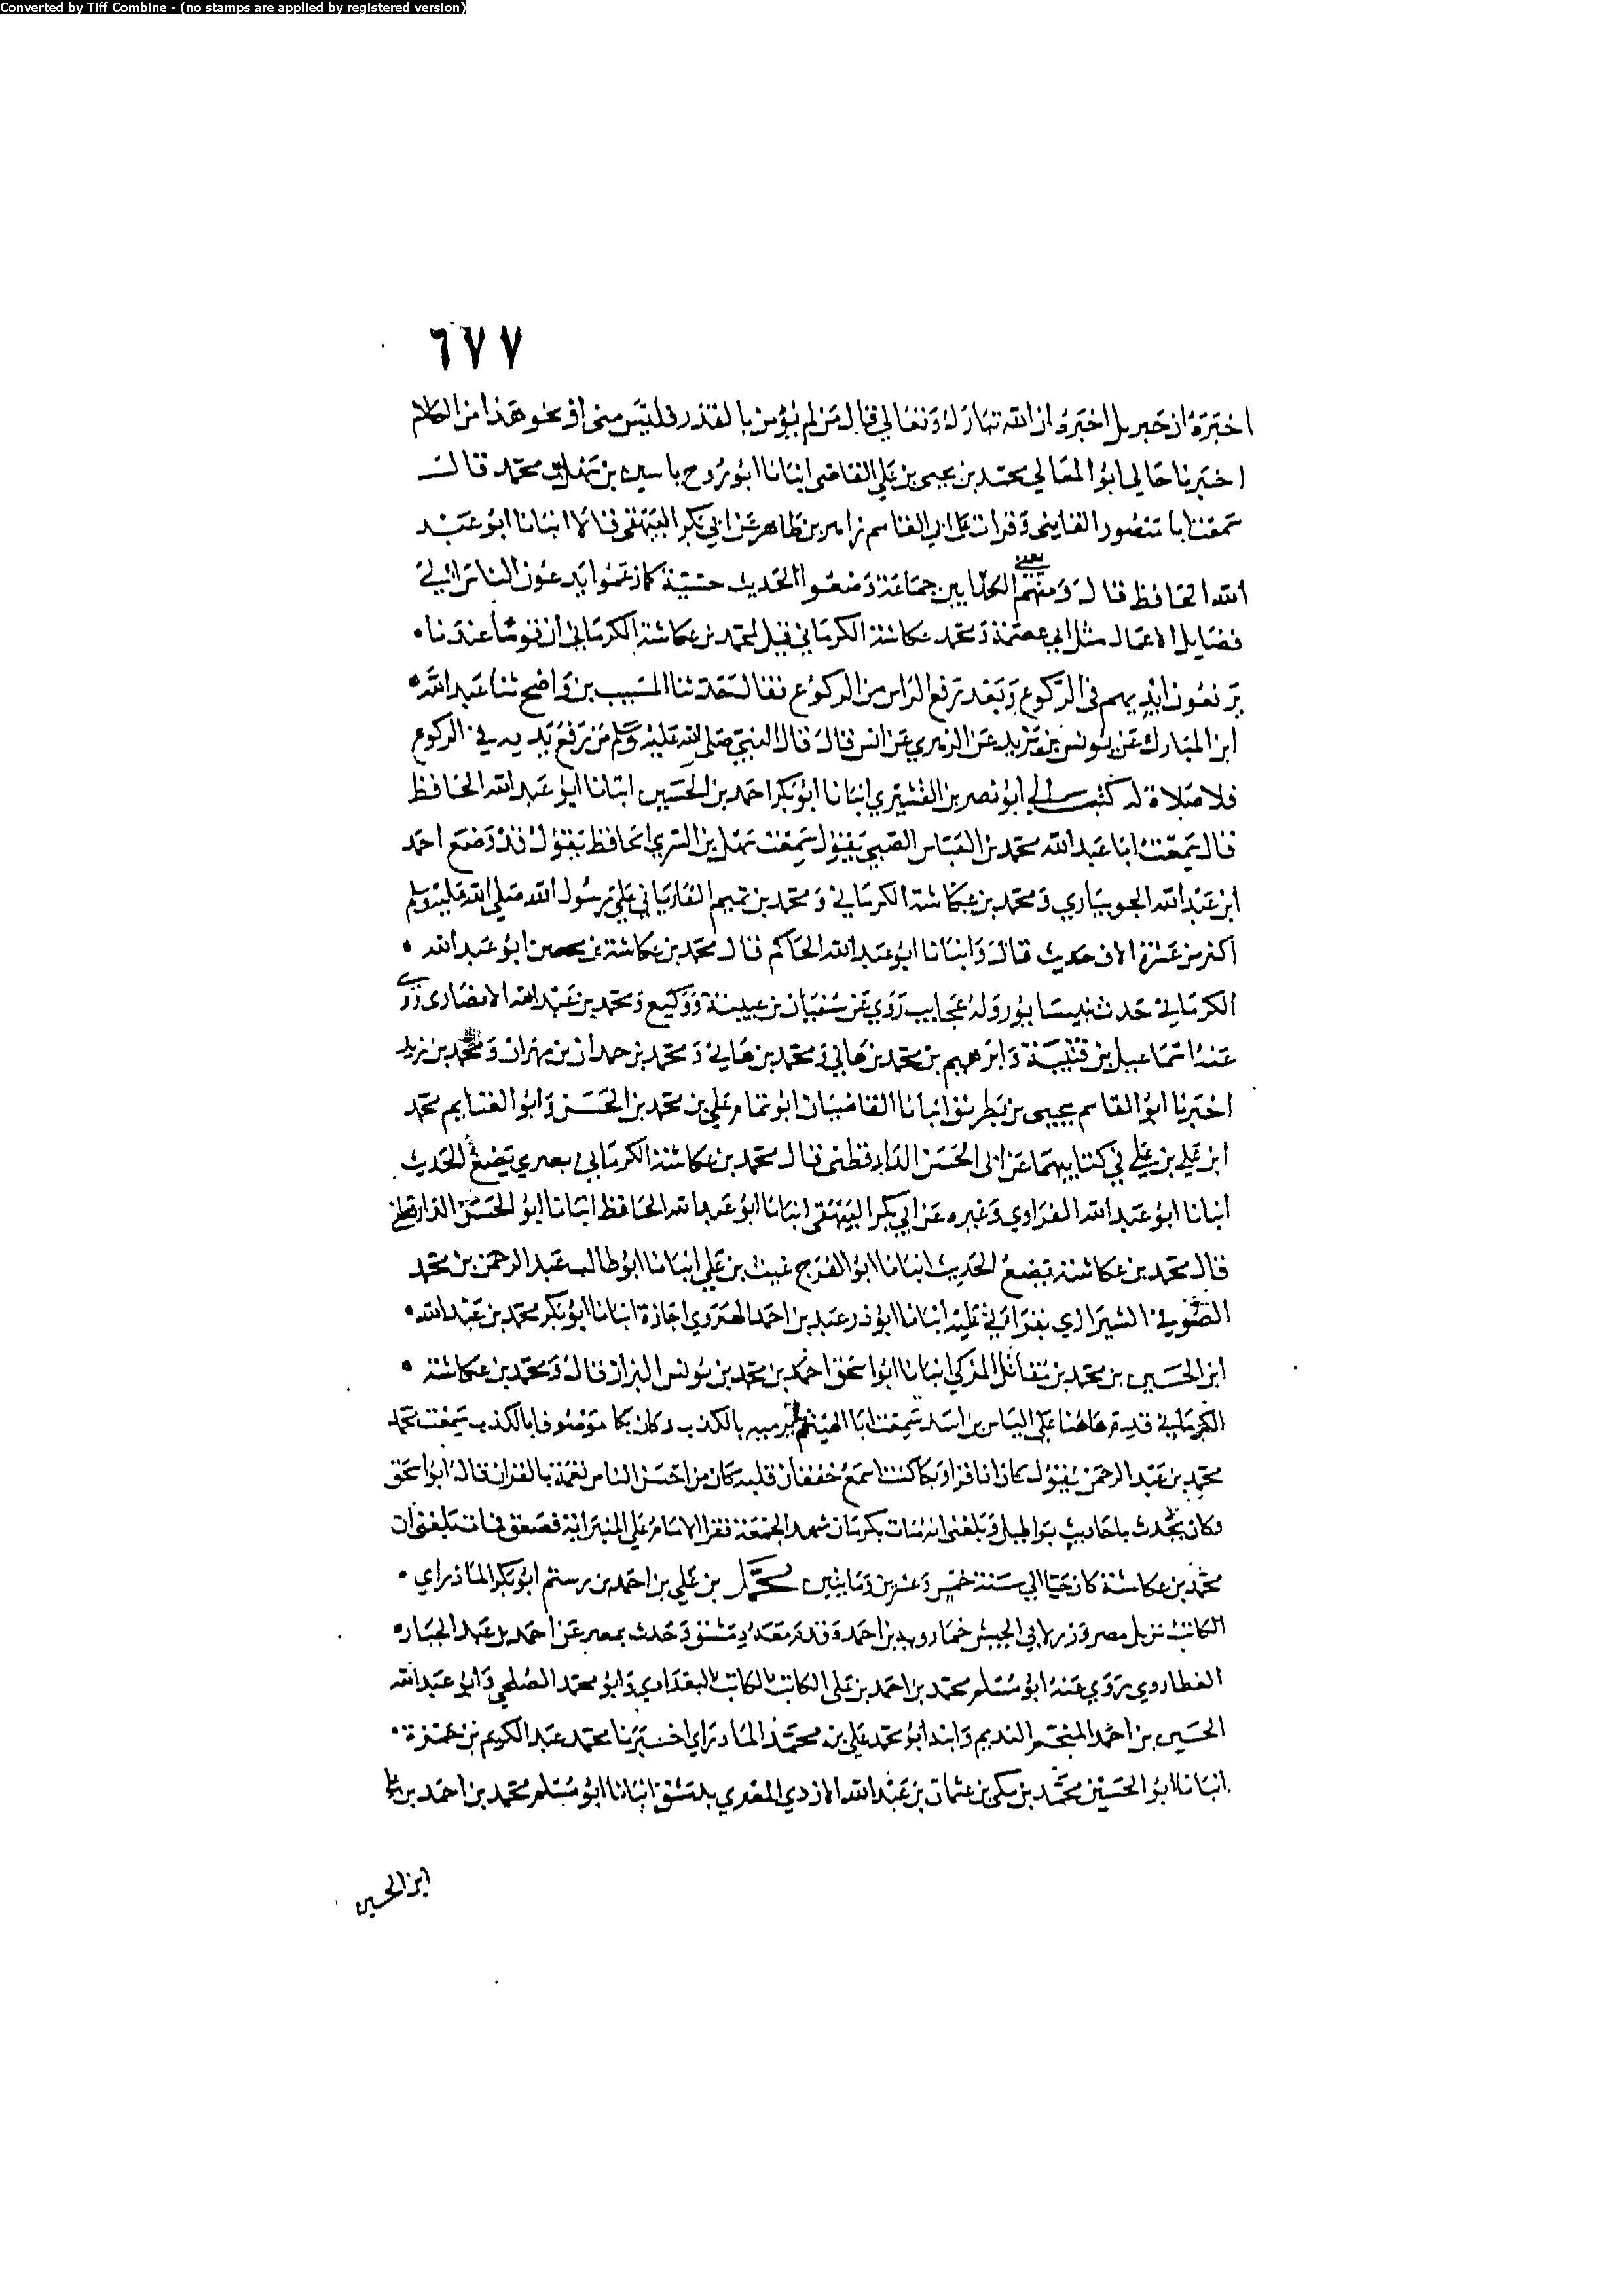 Converted by Tiff Combine - (no stamps are applied by registered version)
٦٧٧
اخبره ان جبريل اخبره ان الله تبارك وتعالى قال من لم يؤمن بالقدر فليس مني او نحو هذا من الكلام
اخبرنا خالي ابو المعالي محمد بن يحيى بن علي القاضي انبانا ابو روح ياسين بن سهل بن محمد قال
سمعت ابا منصور القايني وقرات على ابي القاسم زاهر بن طاهر عن ابي بكر البيهقي قالا انبانا ابو عبد
الله الحافظ قال ومنهم يعني الكذابين جماعة وضعوا الحديث حسبة كما زعموا يدعون الناس الى
فضايل الاعمال مثل ابي عصمة ومحمد عكاشة الكرماني قيل لمحمد بن عكاشة الكرماني ان قوما عندنا
يرفعون ايديهم في الركوع وبعد رفع الراس من الركوع فقال حدثنا المسيب بن واضح ثنا عبد الله
ابن المبارك عن يونس بن يزيد عن الزهري عن انس قال قال النبي صلى الله عليه وسلم من رفع يديه في الركوع
فلا صلاة له كتب الي ابو نصر بن القشيري انبانا ابو بكر احمد بن الحسين انبانا ابو عبد الله الحافظ
قال سمعت ابا عبد الله محمد بن العباس الضبي يقول سمعت سهل بن السري الحافظ يقول قد وضع احمد
ابن عبد الله الجويباري ومحمد بن عكاشة الكرماني ومحمد بن تميم الفاريابي على رسول الله صلى الله عليه وسلم
اكثر من عشرة الاف حديث قال وانبانا ابو عبد الله الحاكم قال محمد بن عكاشة بن محصن ابو عبد الله
الكرماني حدث بنيسابور وله عجايب روي عن سفيان بن عيينة ووكيع ومحمد بن عبد الله الانصاري روى
عنه اسماعيل بن قتيبة وابرهيم بن محمد بن هاني ومحمد بن هاني ومحمد بن حمدان بن مهران ومحمد بن يزيد
اخبرنا ابو القاسم يحيى بن بطريق انبانا القاضيان ابو تمام علي بن محمد بن الحسن وابو الغنايم محمد
ابن علي بن علي في كتابيهما عن ابي الحسن الدارقطني قال محمد بن عكاشة الكرماني بصري يضع الحديث
انبانا ابو عبد الله الفراوي وغيره عن ابي بكر البيهقي انبانا ابو عبد الله الحافظ انبانا ابو الحسن الدارقطني
قال محمد بن عكاشة يضع الحديث انبانا ابو الفرج غيث بن علي انبانا ابو طالب عبد الرحمن بن محمد
الصوفي الشيرازي بقراتي عليه انبانا ابو ذر عبد بن احمد الهروي اجازة انبانا ابو بكر محمد بن عبد الله
ابن الحسين بن محمد بن مقاتل المزكي انبانا ابو اسحق احمد بن محمد بن يونس البزاز قال ومحمد بن عكاشة
الكرماني قدم هاهنا على الياس بن اسد سمعت ابا الهيثم يرميه بالكذب وكان بكا موصوفا بالكذب سمعت محمد
محمد بن عبد الرحمن يقول كان اذا قرا وبكا كنت اسمع خفقان قلبه كان من احسن الناس نغمة بالقران قال ابو اسحق
وكان يحدث باحاديث بواطيل وبلغني انه مات بكرمان شهد الجمعة فقرا الامام على المنبر اية فصعق فمات بلغني ان
محمد بن عكاشة كان حيا الى سنة خمس وعشرين ومايتين محمد بن علي بن احمد بن رستم ابو بكر الماذرايي
الكاتب نزيل مصر وزر لابي الجيش خمارويه بن احمد وقدم معه دمشق وحدث بمصر عن احمد بن عبد الجبار
العطاردي روي عنه ابو مسلم محمد بن احمد بن علي الكاتب الكاتب البغدادي وابو محمد الصلحي وابو عبد الله
الحسين بن احمد المنجم النديم وابنه ابو محمد علي بن محمد المادراي اخبرنا محمد عبد الكريم بن حمزة
انبانا ابو الحسين محمد بن مكي بن عثمان بن عبد الله الازدي المصري بدمشق انبانا ابو مسلم محمد بن احمد بن علي
ابن الحسين